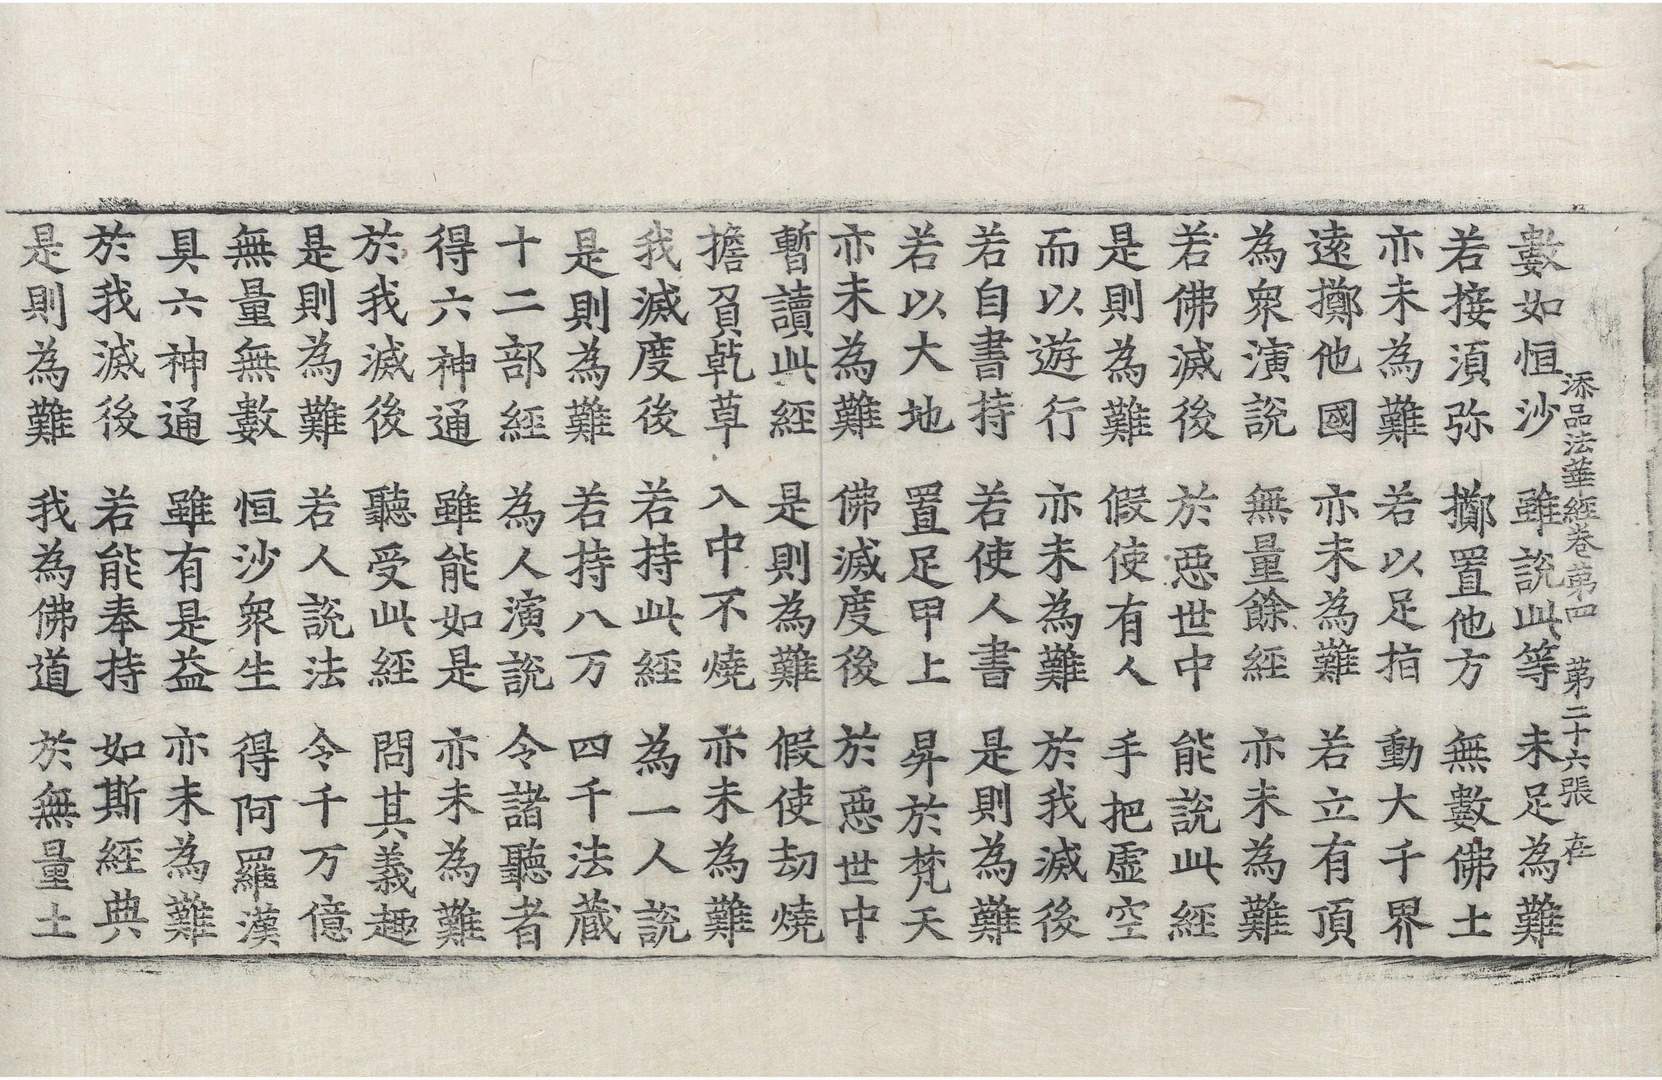 添品法華經卷第四 第二十六張 在
數如恒沙 雖說此等 未足為難
若接須弥 擲置他方 無數佛土
亦未為難 若以足指 動大千界
遠擲他國 亦未為難 若立有頂
為衆演說 無量餘經 亦未為難
若佛滅後 於惡世中 能說此經
是則為難 假使有人 手把虛空
而以遊行 亦未為難 於我滅後
若自書持 若使人書 是則為難
若以大地 置足甲上 昇於梵天
亦未為難 佛滅度後 於惡世中
暫讀此經 是則為難 假使劫燒
擔負乾草 入中不燒 亦未為難
我滅度後 若持此經 為一人說
是則為難 若持八万 四千法藏
十二部經 為人演說 令諸聽者
得六神通 雖能如是 亦未為難
於我滅後 聽受此經 問其義趣
是則為難 若人說法 令千万億
無量無數 恒沙衆生 得阿羅漢
具六神通 雖有是益 亦未為難
於我滅後 若能奉持 如斯經典
是則為難 我為佛道 於無量土